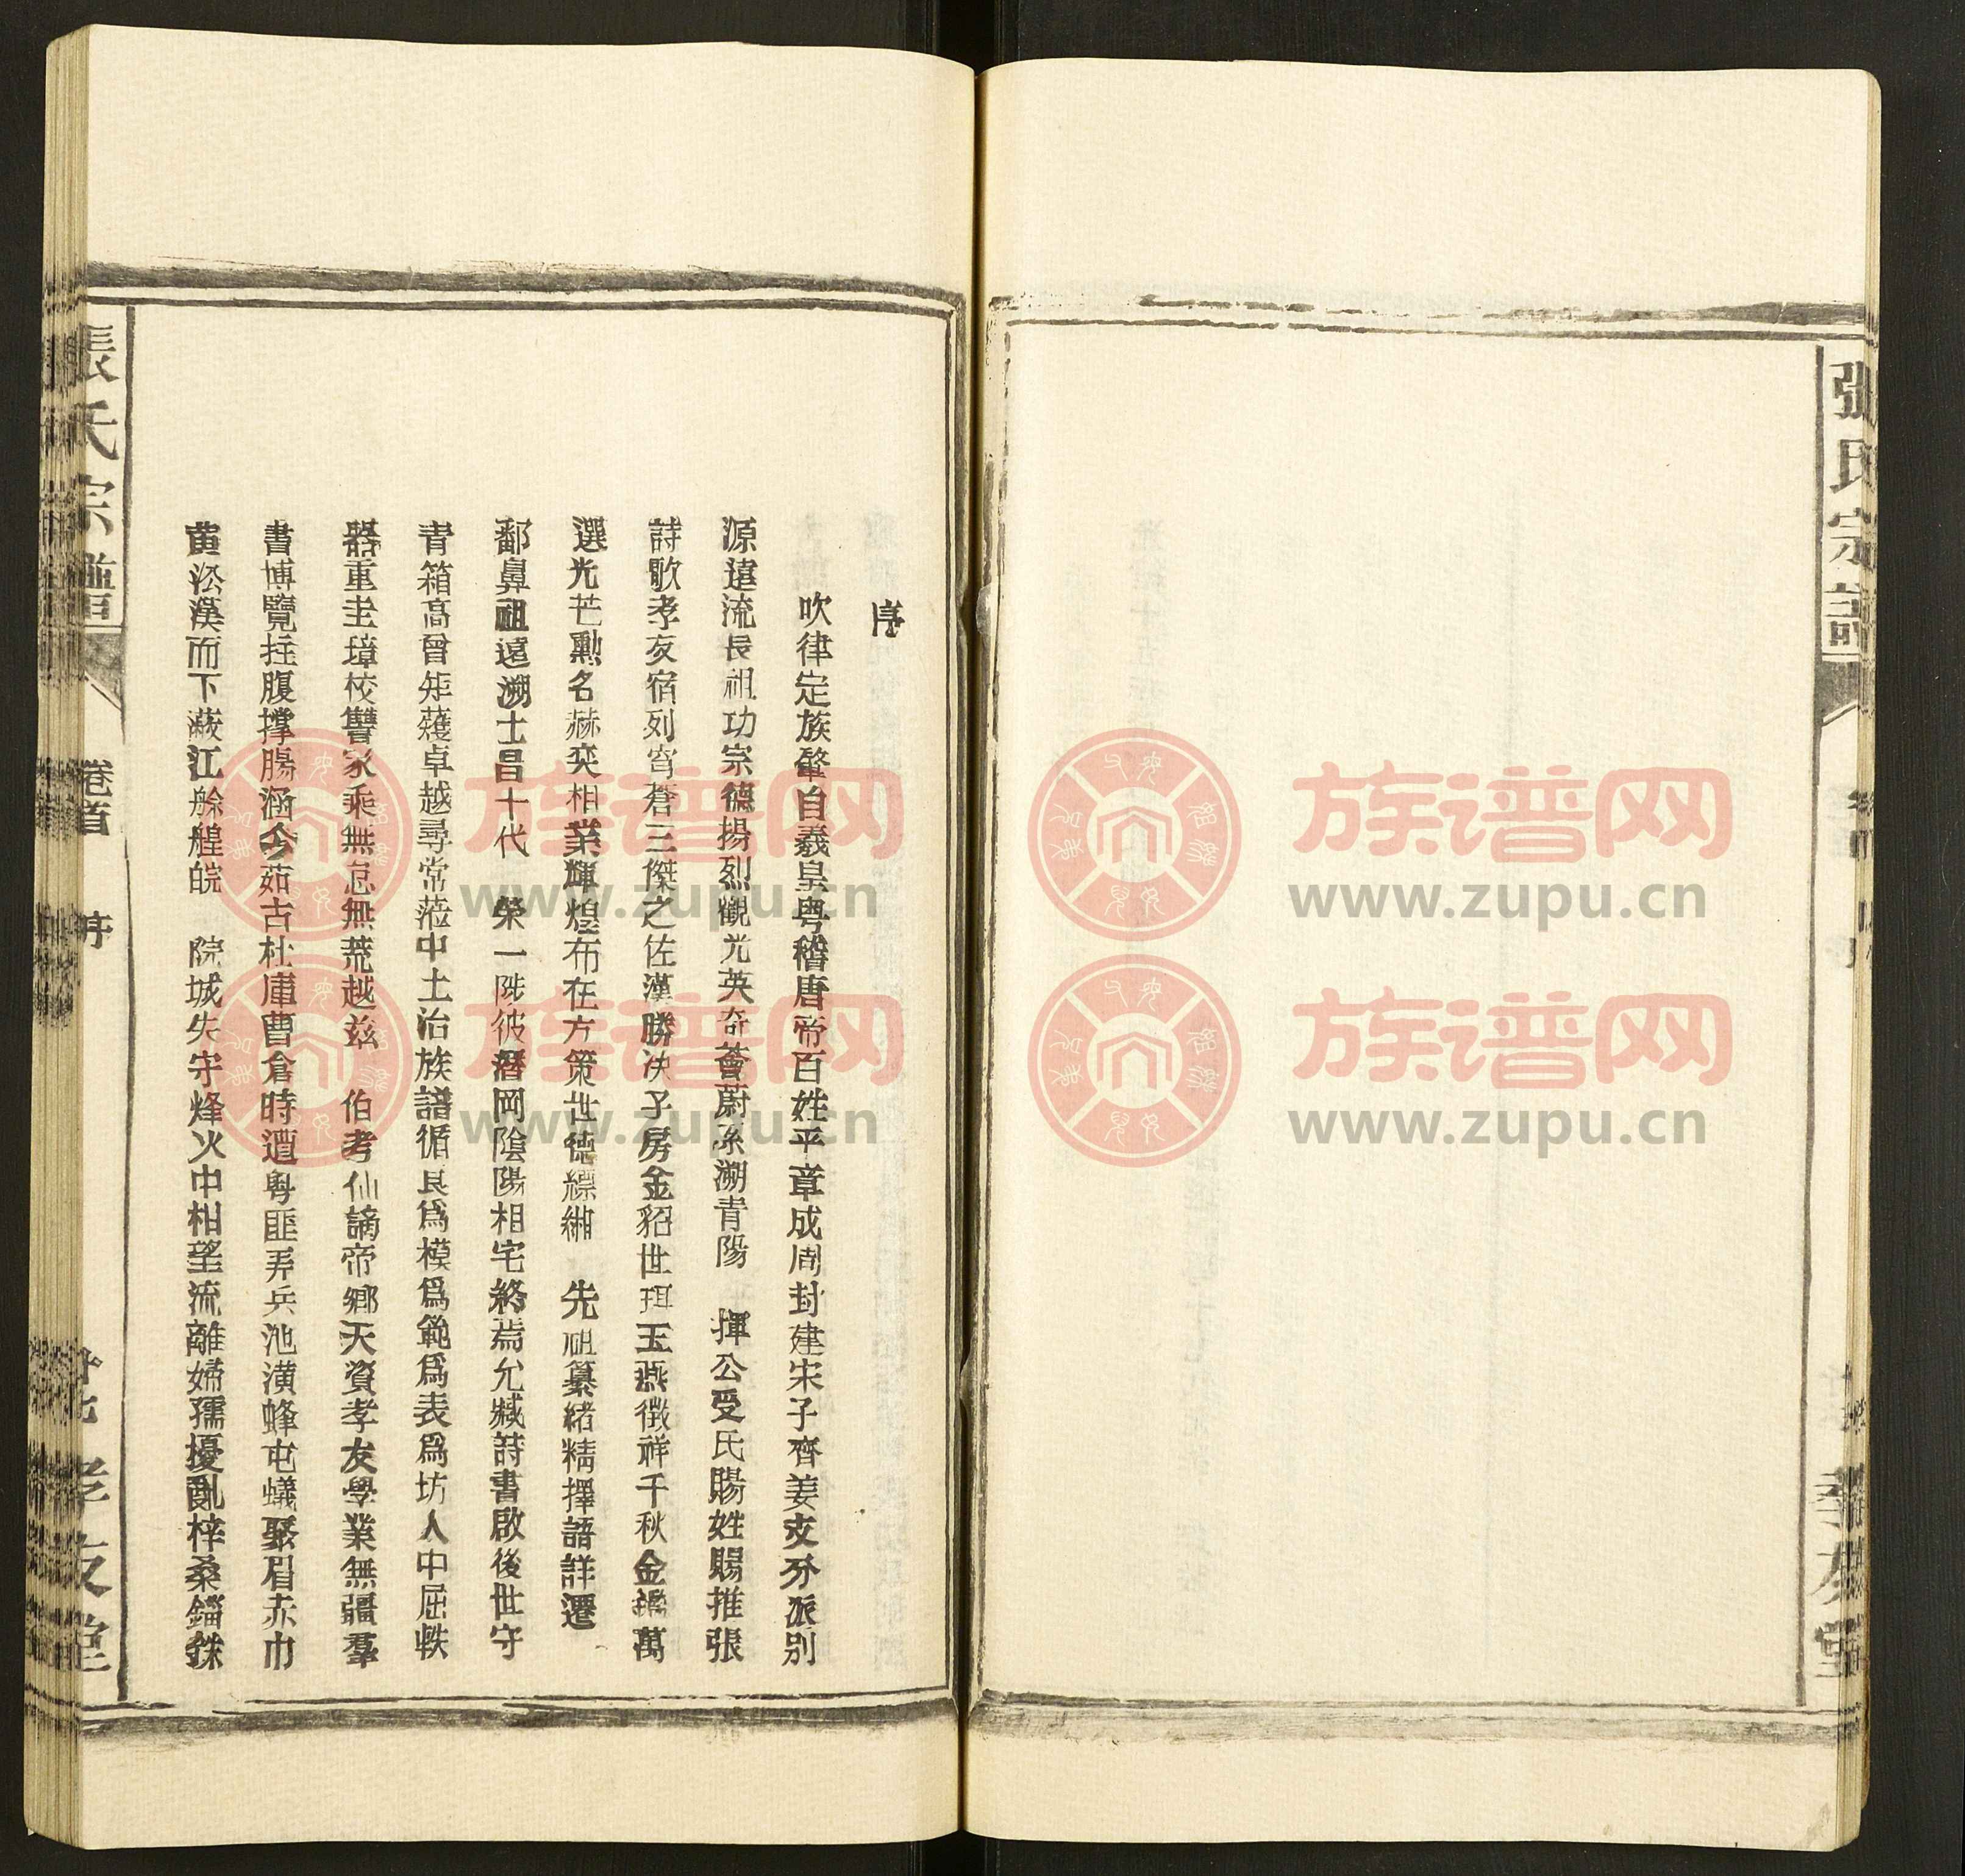 張氏宗譜
孝友堂
序
吹律定族肇自羲皇粤稽唐帝百姓平章成周封建宋子齊姜支分派別
源遠流長祖功宗德揚烈觀光英奇薈蔚系溯青陽 揮公受氏賜姓賜推張
詩歌孝友宿列穹蒼三傑之佐漢勝决子房金貂世珥玉燕徵祥千秋金鑑萬
選光芒勲名赫奕相業輝煌布在方策世德縹緗 先祖纂緒精擇語詳遷
鄱鼻祖遠溯士昌十代 榮一陟彼潛岡陰陽相宅終焉允臧詩書啟後世守
青箱高曾矩矱卓越尋常蒞中土治族譜循良爲模爲範爲表爲坊人中屈軼
器重圭璋校讐家乘無怠無荒越兹 伯考仙謫帝鄉天資孝友學業無疆羣
書博覽拄腹撑腸涵今茹古杜庫曹倉時遭粤匪弄兵池潢蜂屯蟻聚眉赤巾
黄沿漢而下蔽江艅艎皖 院城失守烽火中相望流離婦孺擾亂梓桑錙銖
張氏宗譜
卷首
序
孝友堂
族谱网
www.zupu.cn
族谱网
www.zupu.cn
族谱网
www.zupu.cn
族谱网
www.zupu.cn